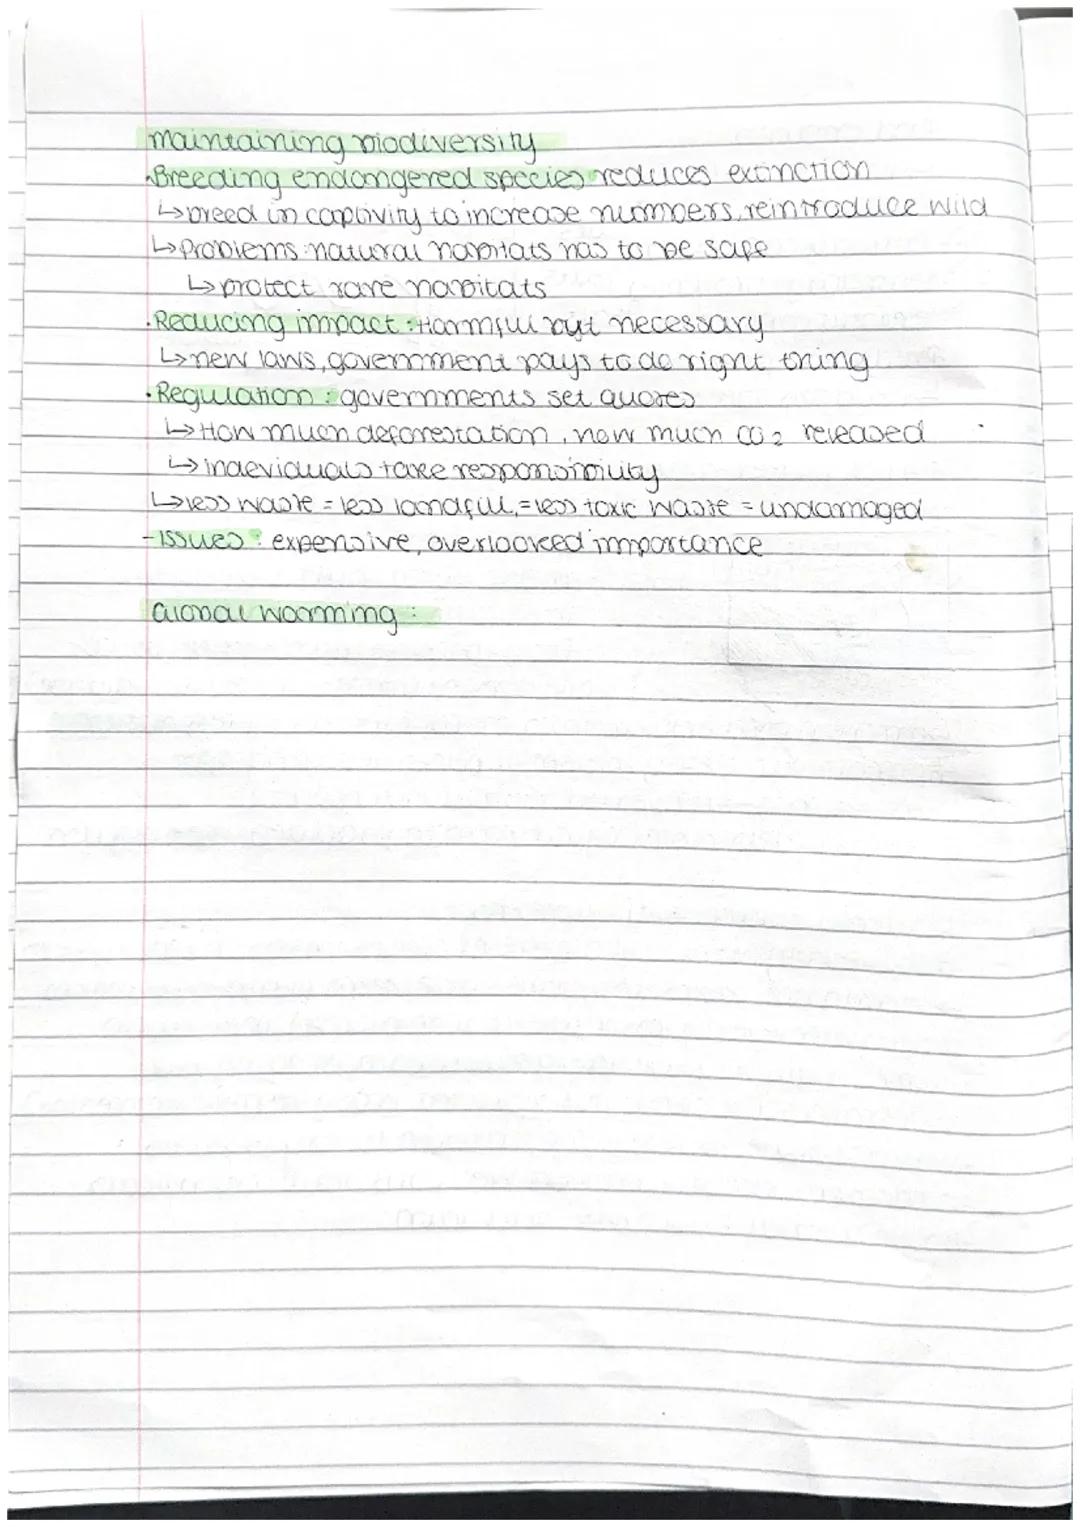 Maintaining biodiversity
·Breeding endangered species reduces extinction
↳breed in captivity to increase numbers, reintroduce wild
↳Problems: natural habitats has to be safe
↳protect rare habitats
·Reducing impact: Harmful but necessary
↳new laws, government pays to do right thing
·Regulation: governments set quotes
↳How much deforestation, how much CO2 released
↳indeviduals take responsibility
↳less waste = less landfill, = less toxic waste = undamaged
-Issues: expensive, overlooked importance
Global warming: